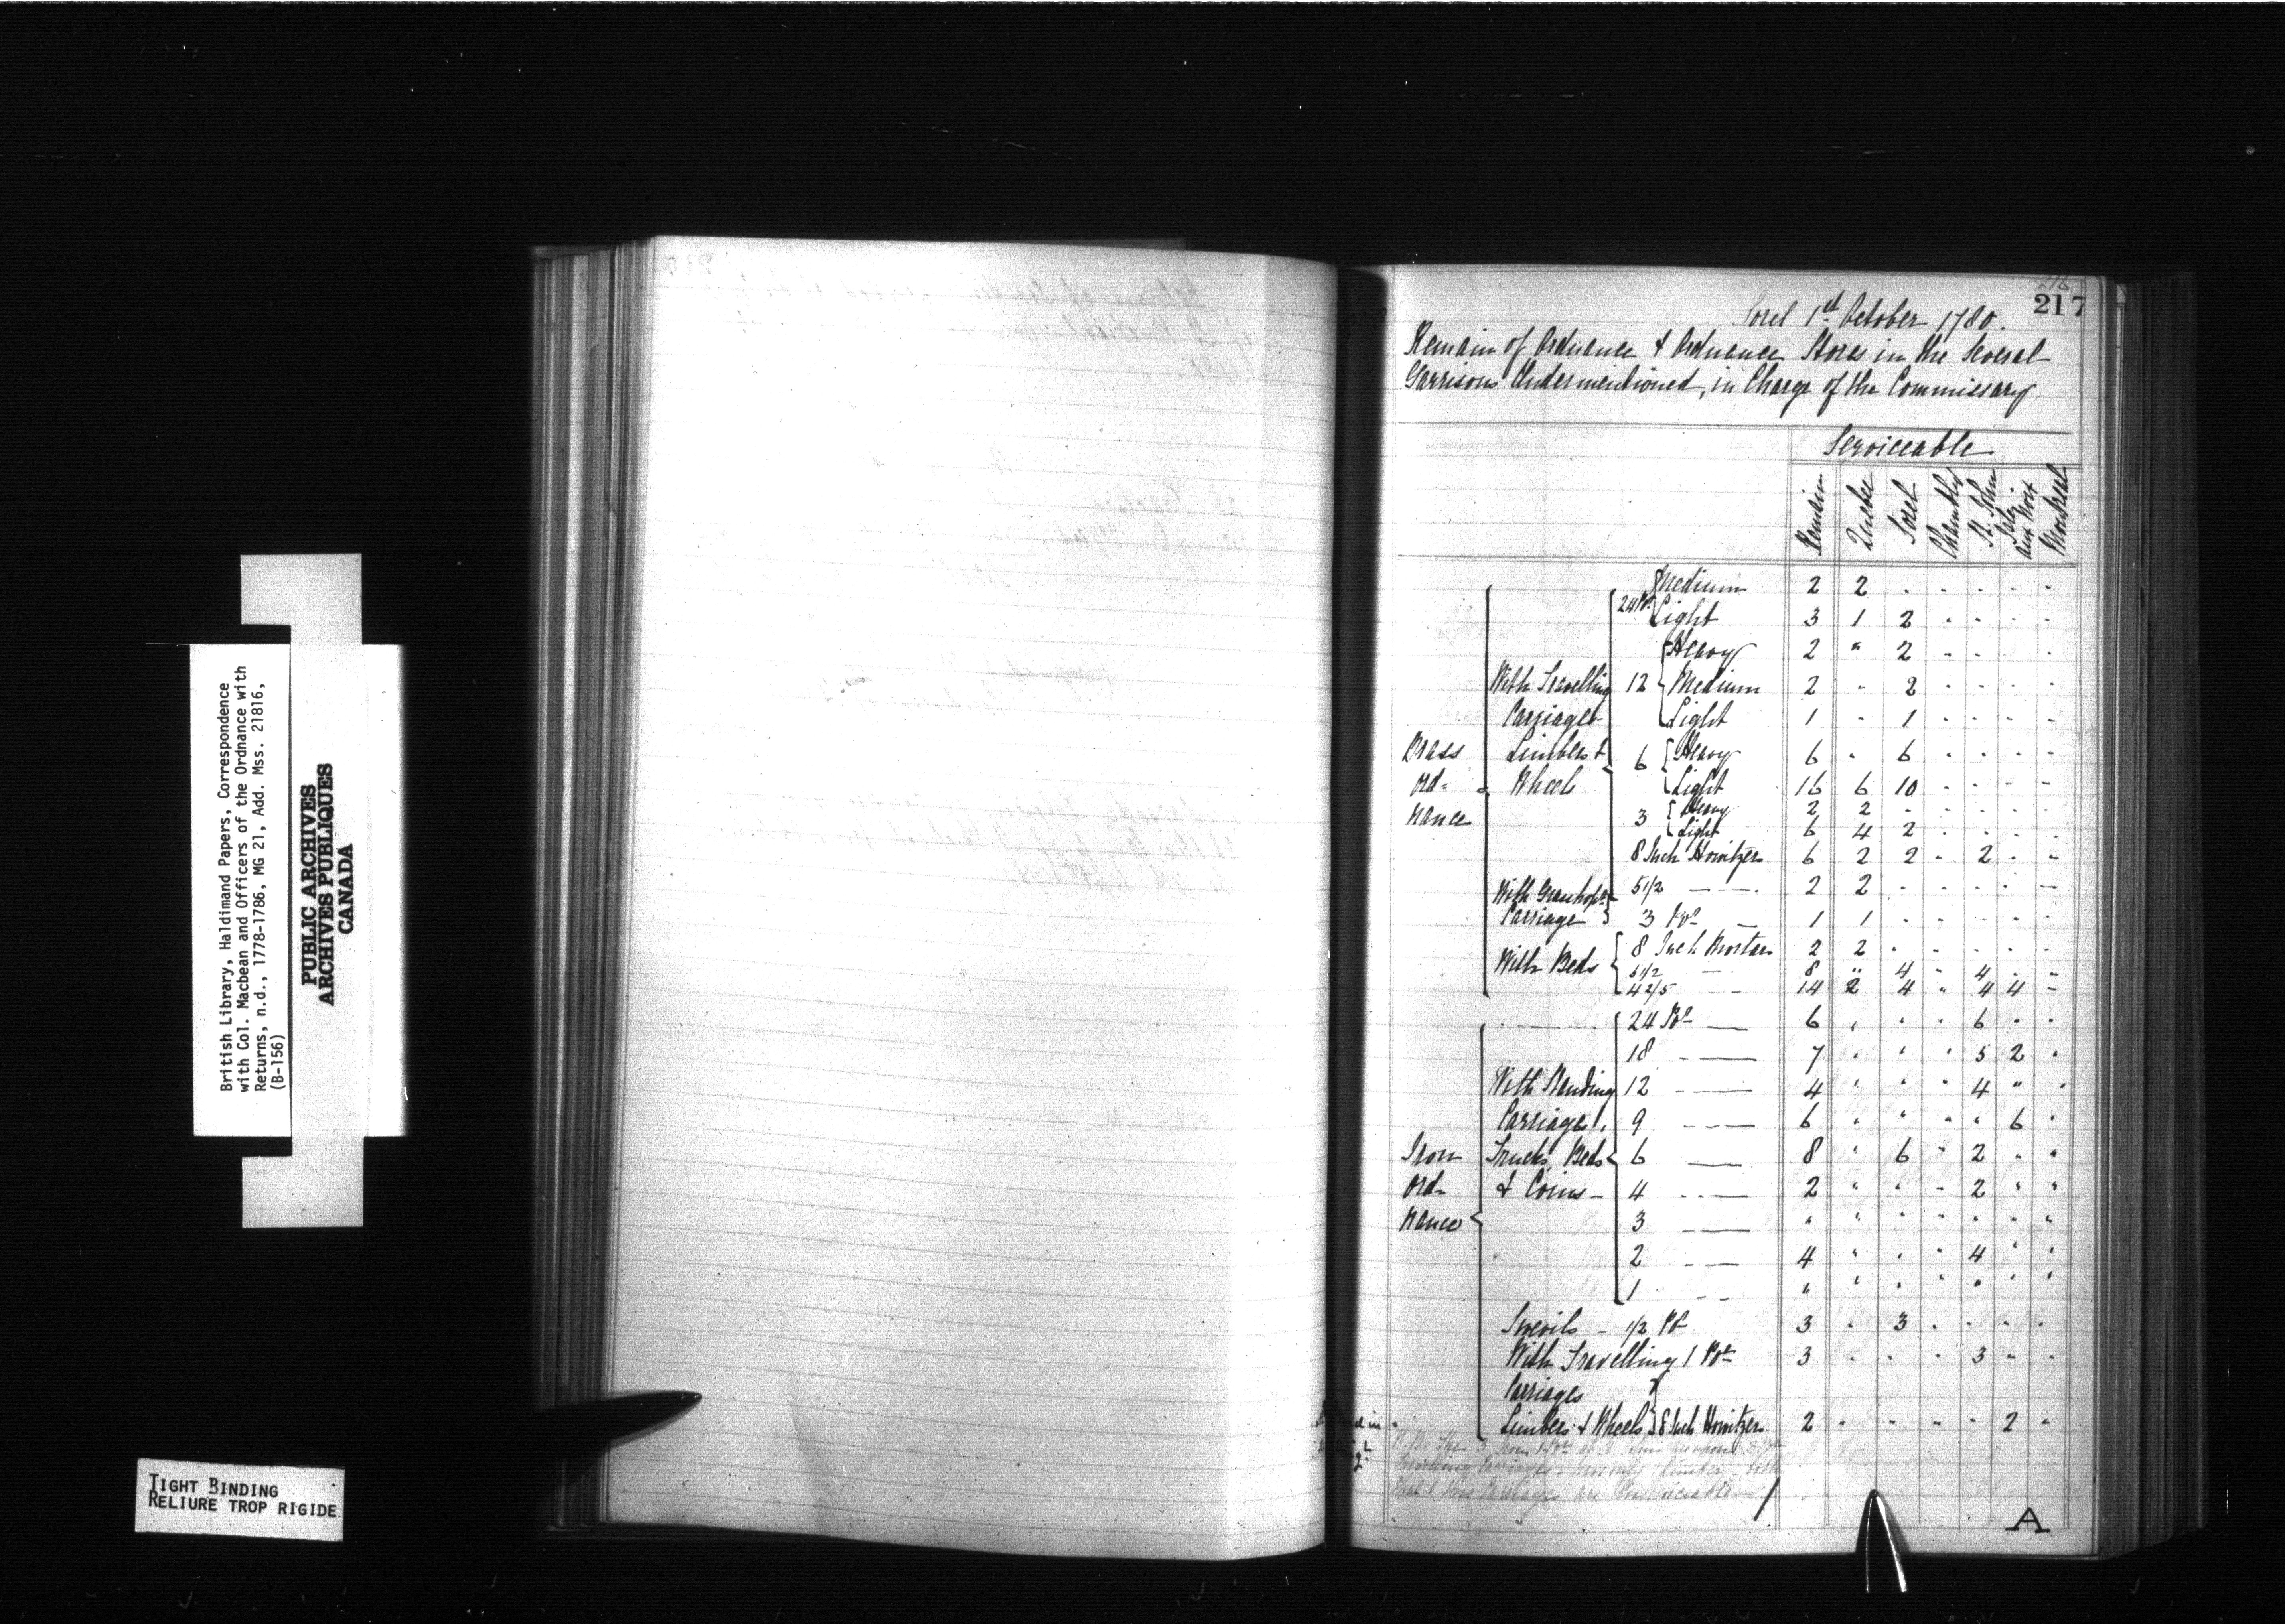 British Library, Haldimand Papers, Correspondence
with Col. Macbean and Officers of the Ordnance with
Returns, n.d., 1778-1786, MG 21, Add. Mss. 21816,
(B-156)
PUBLIC ARCHIVES
ARCHIVES PUBLIQUES
CANADA
TIGHT BINDING
RELIURE TROP RIGIDE
216
217
Sorel 1st October 1780.
Remain of Ordnance & Ordnance Stores in the Several
Garrisons Undermentioned, in Charge of the Commissary
Serviceable
Remain Quebec Sorel Chambly St. John Isle aux Noix Montreal
Brass Ord= nance
With Travelling Carriages Limbers & Wheels
24 Pr Medium 2 2 . . . . .
Light 3 1 2 . . . .
12 Heavy 2 " 2 . . .
Medium 2 " 2 . . . .
Light 1 " 1 . . . .
6 Heavy 6 " 6 . . . .
Light 16 6 10 . . . .
3 Heavy 2 2 . . . . .
Light 6 4 2 . . . .
8 Inch Howitzers 6 2 2 . 2 . .
5 1/2 — 2 2 . . . . —
With Grasshopr Carriage 3 Pr — 1 1 . . . . .
With Beds
8 Inch Mortars 2 2 . . . . .
5 1/2 — 8 " 4 " 4 . .
4 2/5 — 14 2 4 " 4 4 —
Iron Ord= nance
With Standing Carriages, Trucks, Beds & Coins —
24 Pr — 6 " " " 6 " "
18 — 7 " " " 5 2 "
12 — 4 " " " 4 " "
9 — 6 " " " " 6 "
6 — 8 " 6 " 2 " "
4 — 2 " " " 2 " "
3 — " " " " " " "
2 — 4 " " " 4 " "
1 — " " " " " " "
Swevils — 1/2 Pr 3 " 3 . . . .
With Travelling 1 Pr 3 . . . 3 . .
Carriages
Limbers & Wheels 8 Inch Howitzers 2 " " " " 2 "
N.B. The 3 Iron 1 Prs at St Johns are upon 3 Pr
Travelling Carriages — have only 1 Limber —
the Carriages are Unserviceable —
A